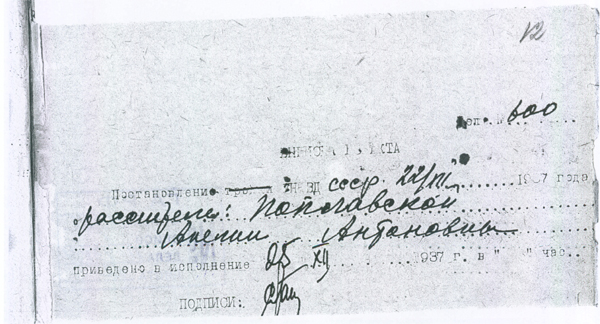 12
Дел. № 600
ВЫПИСКА ИЗ АКТА
Постановление тройки НКВД СССР 22/XI 1937 года
о расстреле: Поплавской
Анелии Антоновны
приведено в исполнение 25 XII 1937 г. в " " час.
ПОДПИСИ: